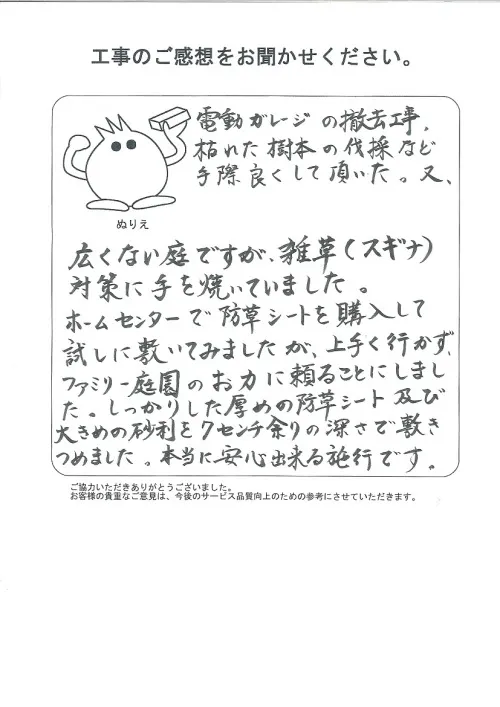 工事のご感想をお聞かせください。
電動ガレージの撤去工事,
枯れた樹木の伐採など
手際良くして頂いた。又、
ぬりえ
広くない庭ですが、雑草(スギナ)
対策に手を焼いていました。
ホームセンターで防草シートを購入して
試しに敷いてみましたが、上手く行かず、
ファミリー庭園のお力に頼ることにしまし
た。しっかりした厚めの防草シート及び
大きめの砂利を7センチ余りの深さで敷き
つめました。本当に安心出来る施行です。
ご協力いただきありがとうございました。
お客様の貴重なご意見は、今後のサービス品質向上のための参考にさせていただきます。